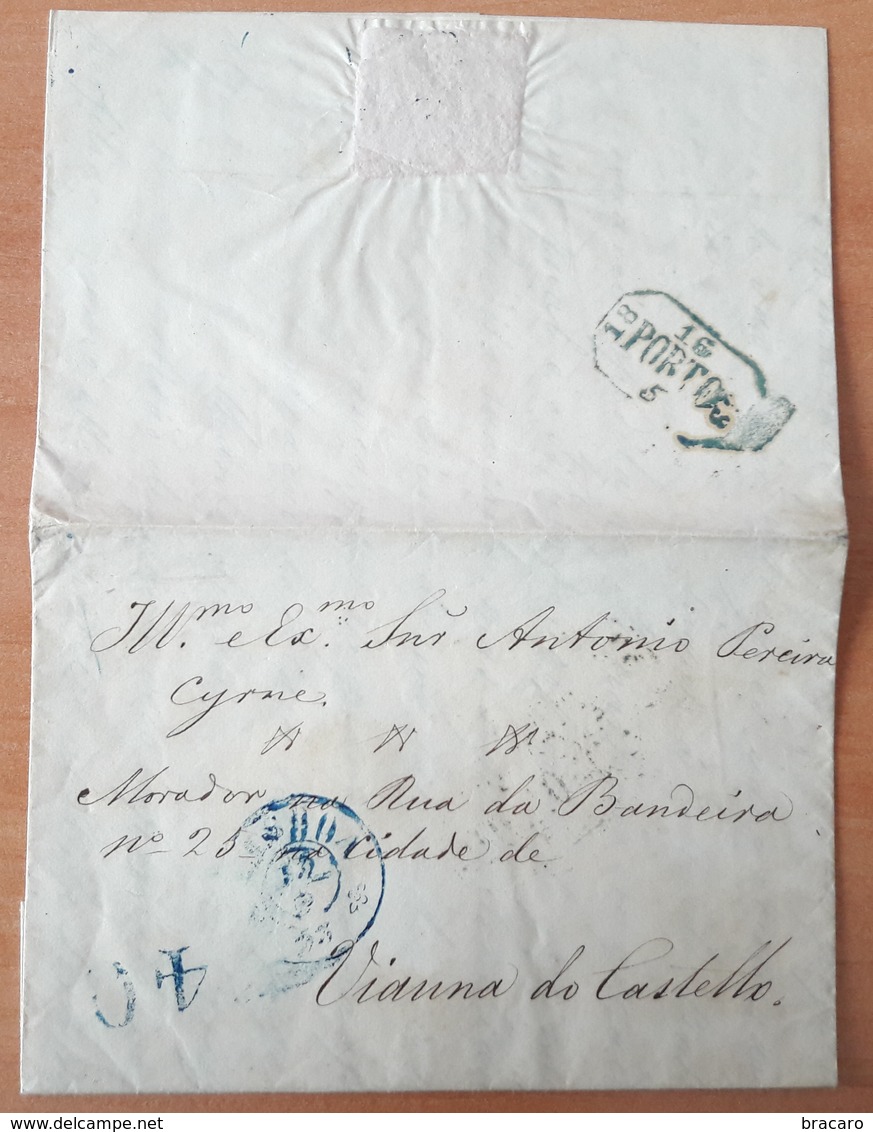 18 16
PORTO
5
Ill.mo e Ex.mo Snr Antonio Pereira
Cyrne.
Morador na Rua da Bandeira
nº 25 na Cidade de
Vianna do Castello.
delcampe.net
bracaro